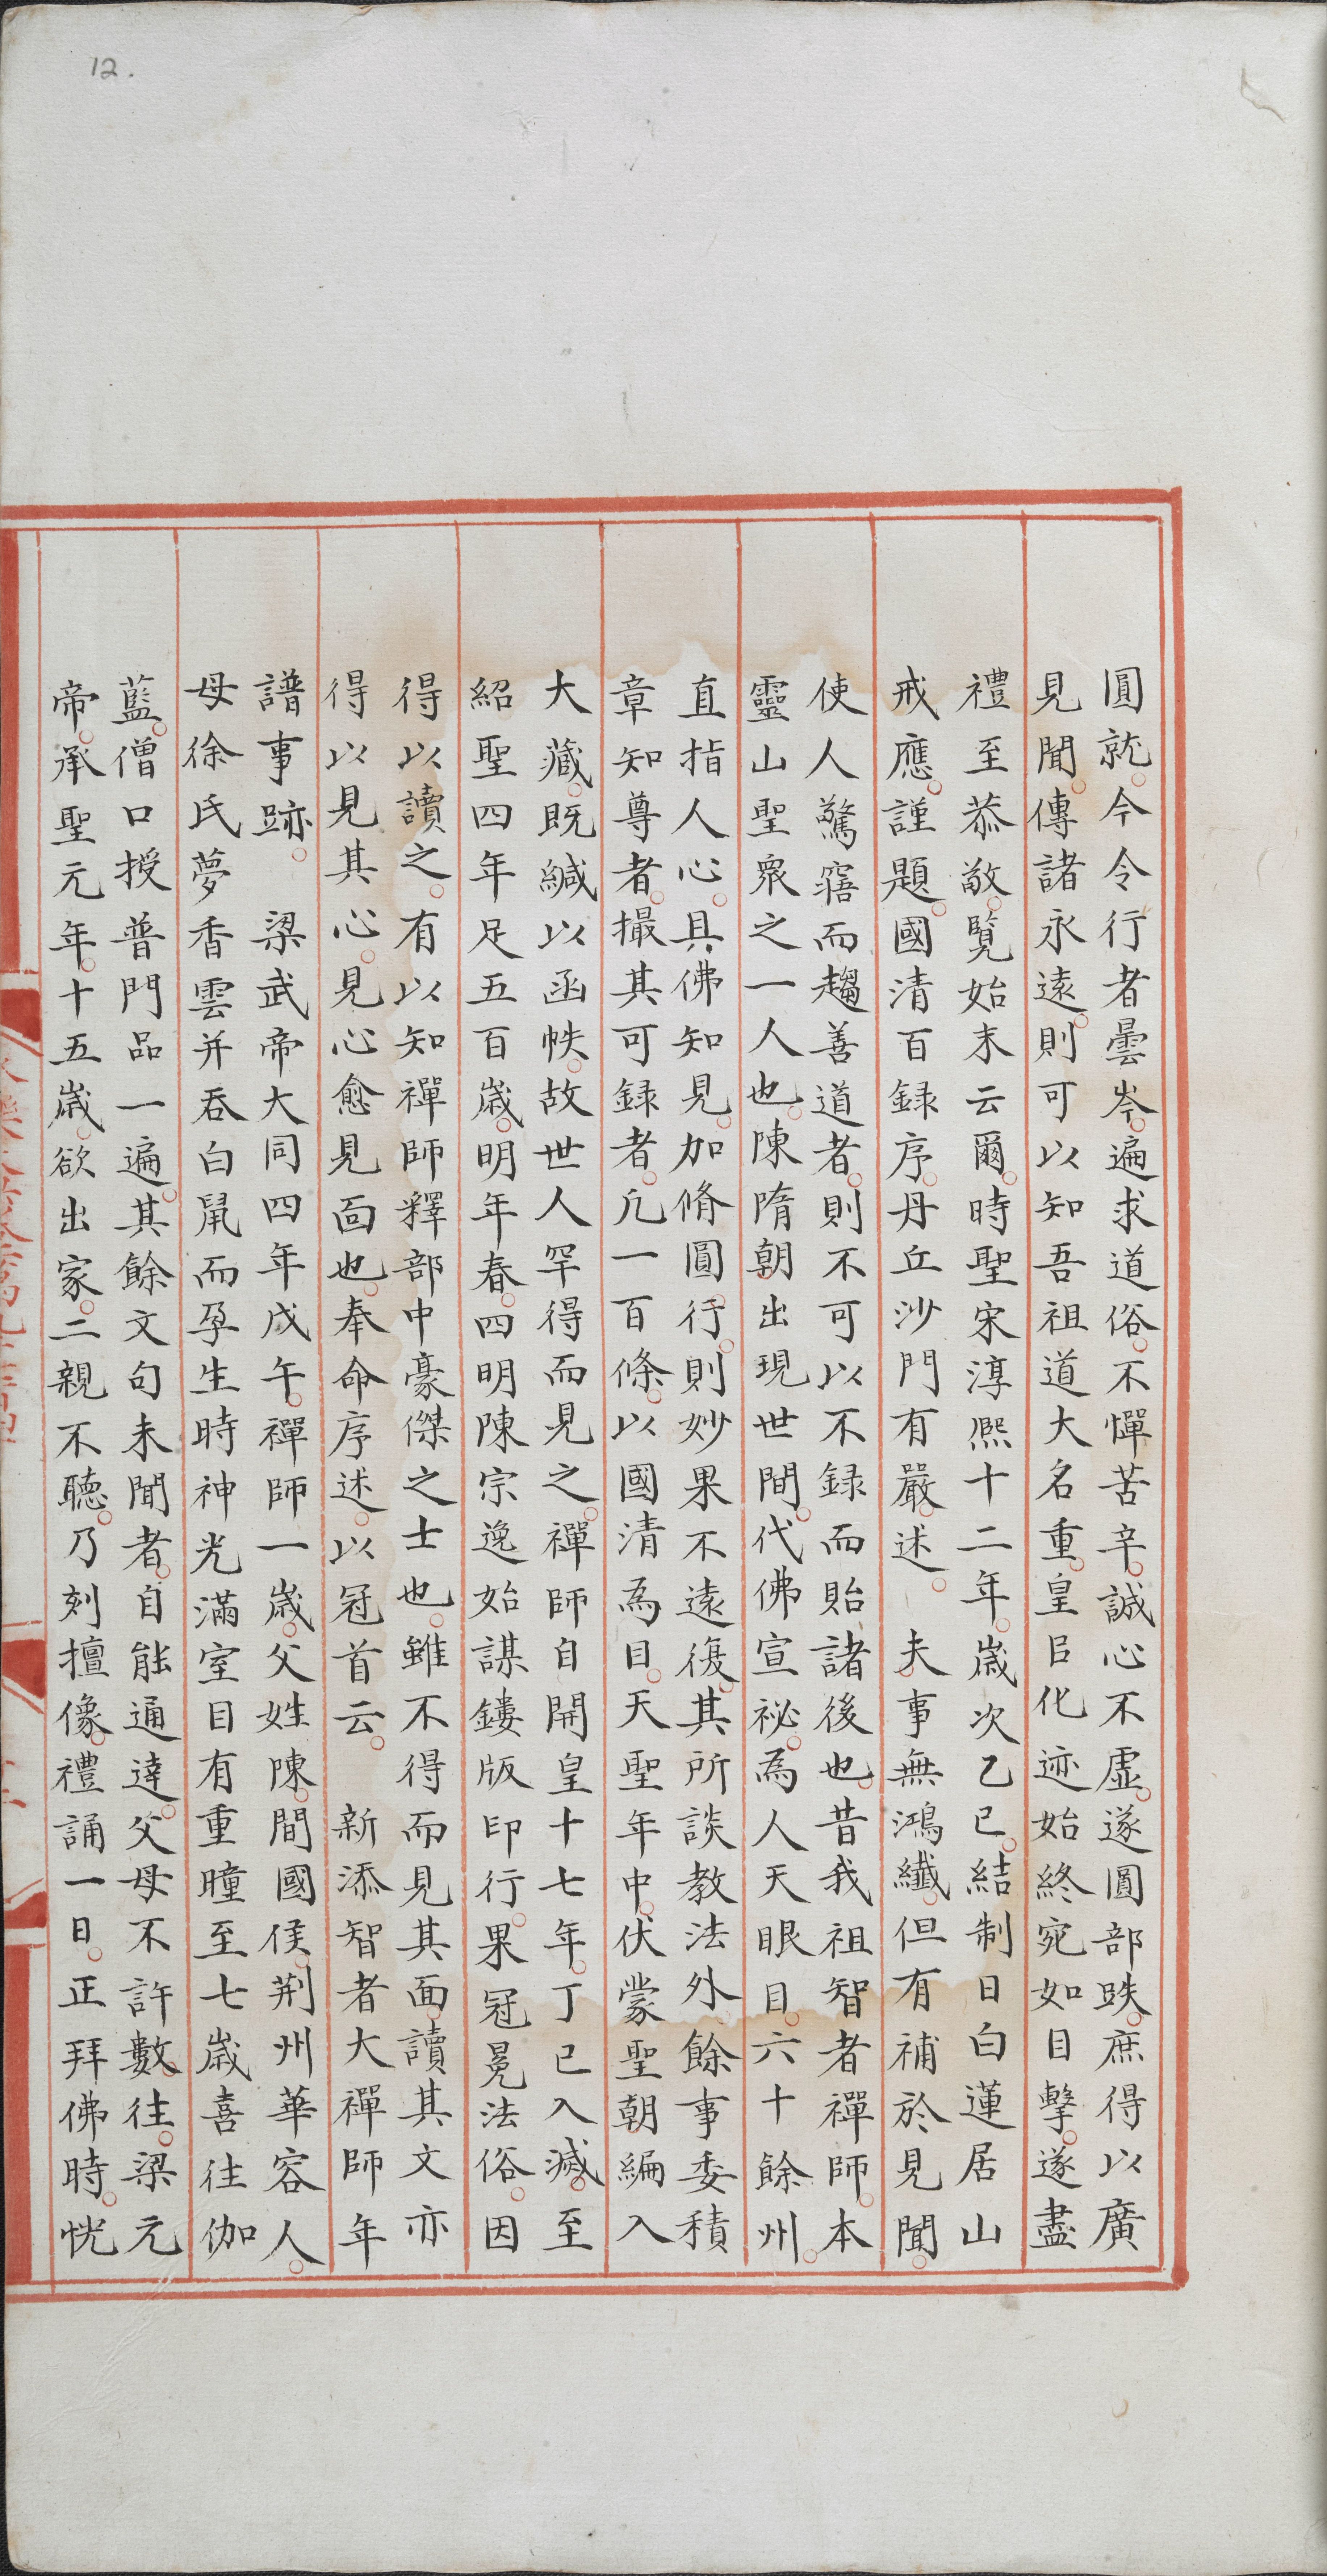 12.
圓就。今令行者曇岑。遍求道俗。不憚苦辛。誠心不虛。遂圓部帙。庶得以廣
見聞。傳諸永遠。則可以知吾祖道大名重。皇臣化迹始終宛如目擊。遂盡
禮至恭敬。覽始末云爾。時聖宋淳熙十二年。歲次乙巳。結制日白蓮居山
戒應。謹題。國清百録序。丹丘沙門有嚴。述。　夫事無鴻纖。但有補於見聞。
使人驚寤而趨善道者。則不可以不録而貽諸後也。昔我祖智者禪師。本
靈山聖衆之一人也。陳隋朝出現世間。代佛宣祕。為人天眼目。六十餘州。
直指人心。具佛知見。加脩圓行。則妙果不遠復。其所談教法外餘事委積
章知尊者。撮其可録者。凢一百條。以國清為目。天聖年中。伏蒙聖朝編入
大藏。既緘以函帙。故世人罕得而見之。禪師自開皇十七年。丁巳入滅。至
紹聖四年足五百歲。明年春。四明陳宗逸始謀鏤版印行。果冠冕法俗。因
得以讀之。有以知禪師釋部中豪傑之士也。雖不得而見其面。讀其文亦
得以見其心。見心愈見面也。奉命序述。以冠首云。　新添智者大禪師年
譜事跡。　梁武帝大同四年戊午。禪師一歲。父姓陳。間國侯。荆州華容人。
母徐氏夢香雲并吞白鼠而孕生時神光滿室目有重瞳至七歲喜往伽
藍。僧口授普門品一遍。其餘文句未聞者。自能通達。父母不許數。往。梁元
帝。承聖元年。十五歲。欲出家。二親不聽。乃刻擅像。禮誦一日。正拜佛時。恍